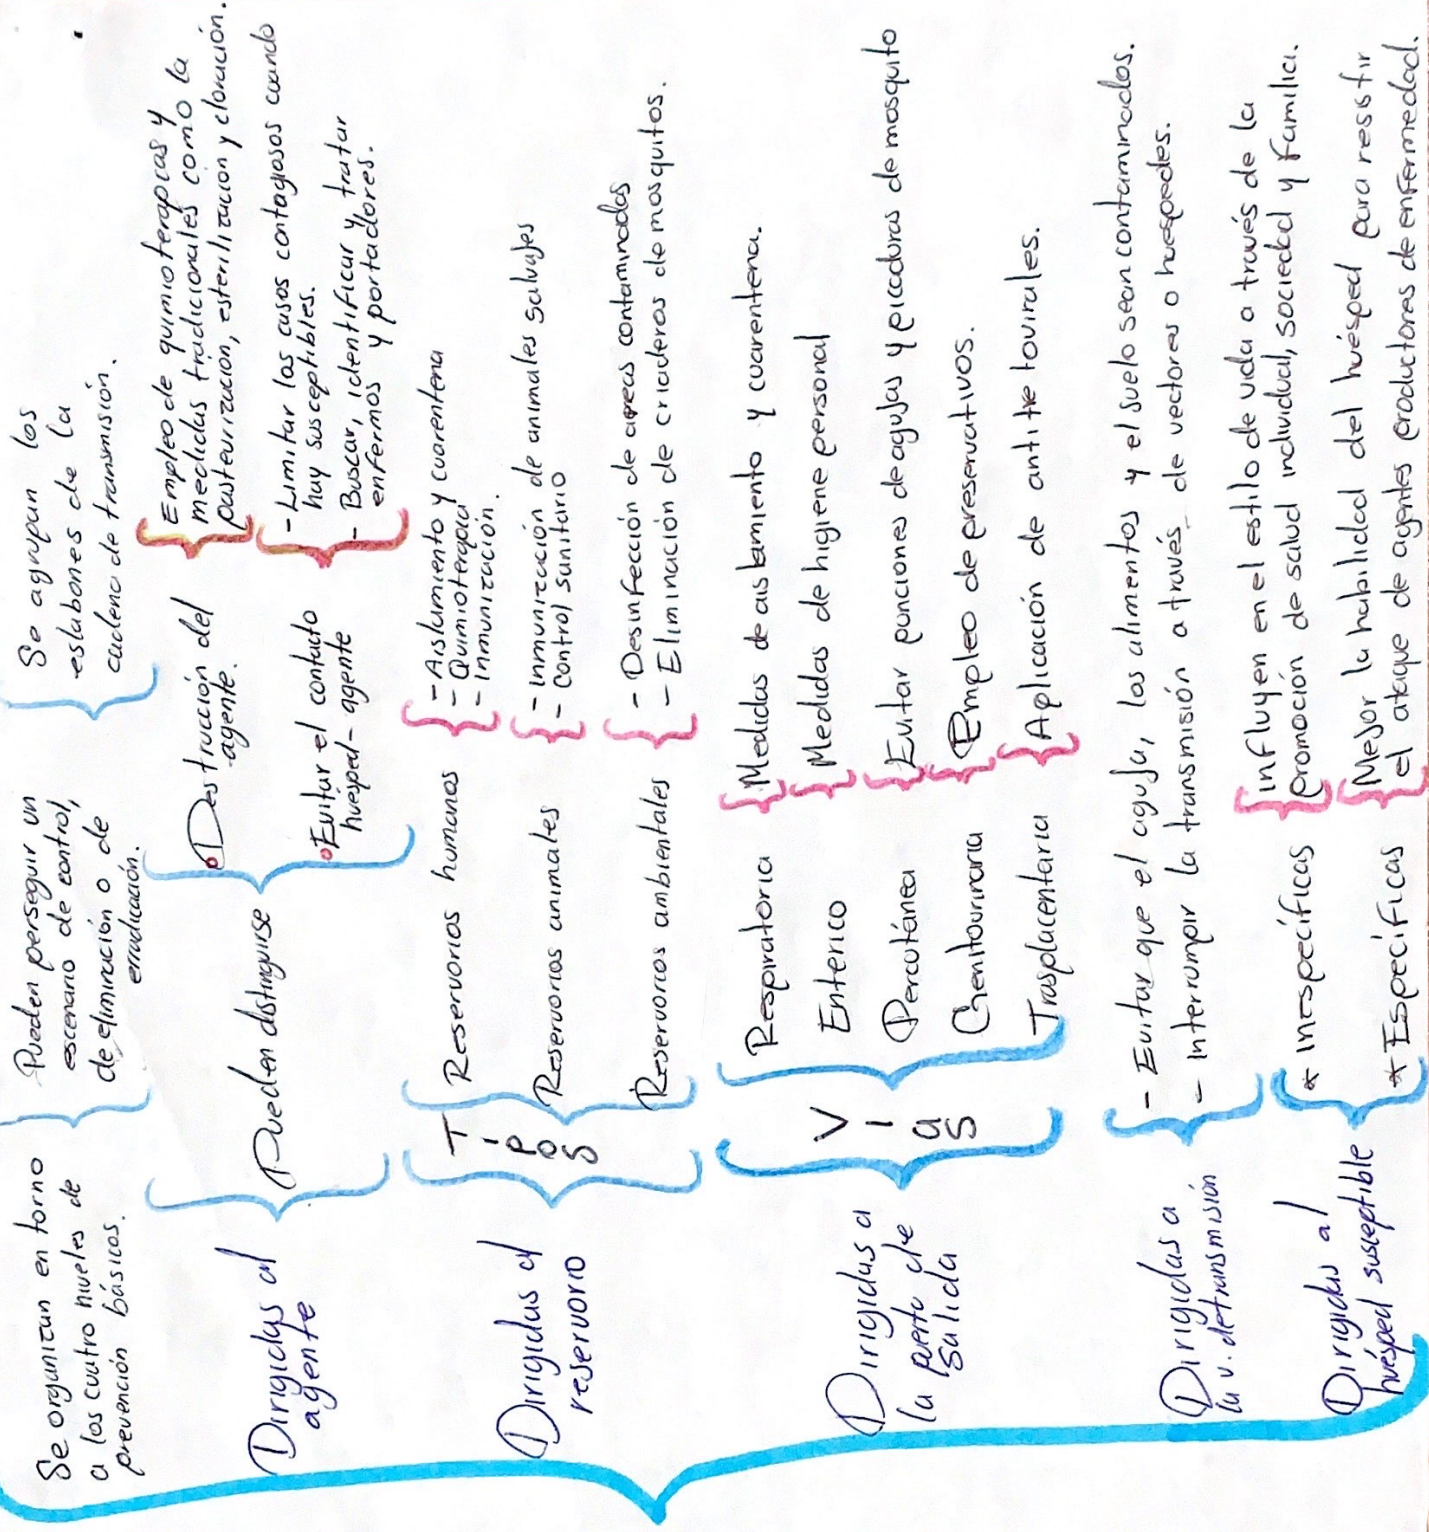 Se organizan en torno
a los cuatro niveles de
prevención básicos.
Pueden perseguir un
escenario de control,
de eliminación o de
erradicación.
Se agrupan los
eslabones de la
cadena de transmisión.
Dirigidas al
agente
Pueden distinguirse
Destrucción del
agente.
Empleo de quimioterapias y
medidas tradicionales como la
pasteurización, esterilización y cloración.
Evitar el contacto
huésped-agente
- Limitar los casos contagiosos cuando
hay susceptibles.
- Buscar, identificar y tratar
enfermos y portadores.
Dirigidas al
reservorio
Tipos
Reservorios humanos
- Aislamiento y cuarentena
- Quimioterapia
- Inmunización.
Reservorios animales
- Inmunización de animales salvajes
- Control sanitario
Reservorios ambientales
- Desinfección de areas contaminadas
- Eliminación de criaderos de mosquitos.
Dirigidas a
la puerta de
salida
Vias
Respiratoria
Medidas de aislamiento y cuarentena.
Enterico
Medidas de higiene personal
Percutánea
Evitar punciones de agujas y picaduras de mosquito
Genitourinaria
Empleo de preservativos.
Trasplacentaria
Aplicación de antitrerovirales.
Dirigidas a
la v. de transmisión
- Evitar que el aguja, los alimentos y el suelo sean contaminados.
- Interrumpir la transmisión a través de vectores o huespedes.
Dirigidas al
huésped susceptible
* Inespecíficas
Influyen en el estilo de vida a través de la
promoción de salud individual, sociedad y familia.
* Específicas
Mejor la habilidad del huésped para resistir
el ataque de agentes productores de enfermedad.